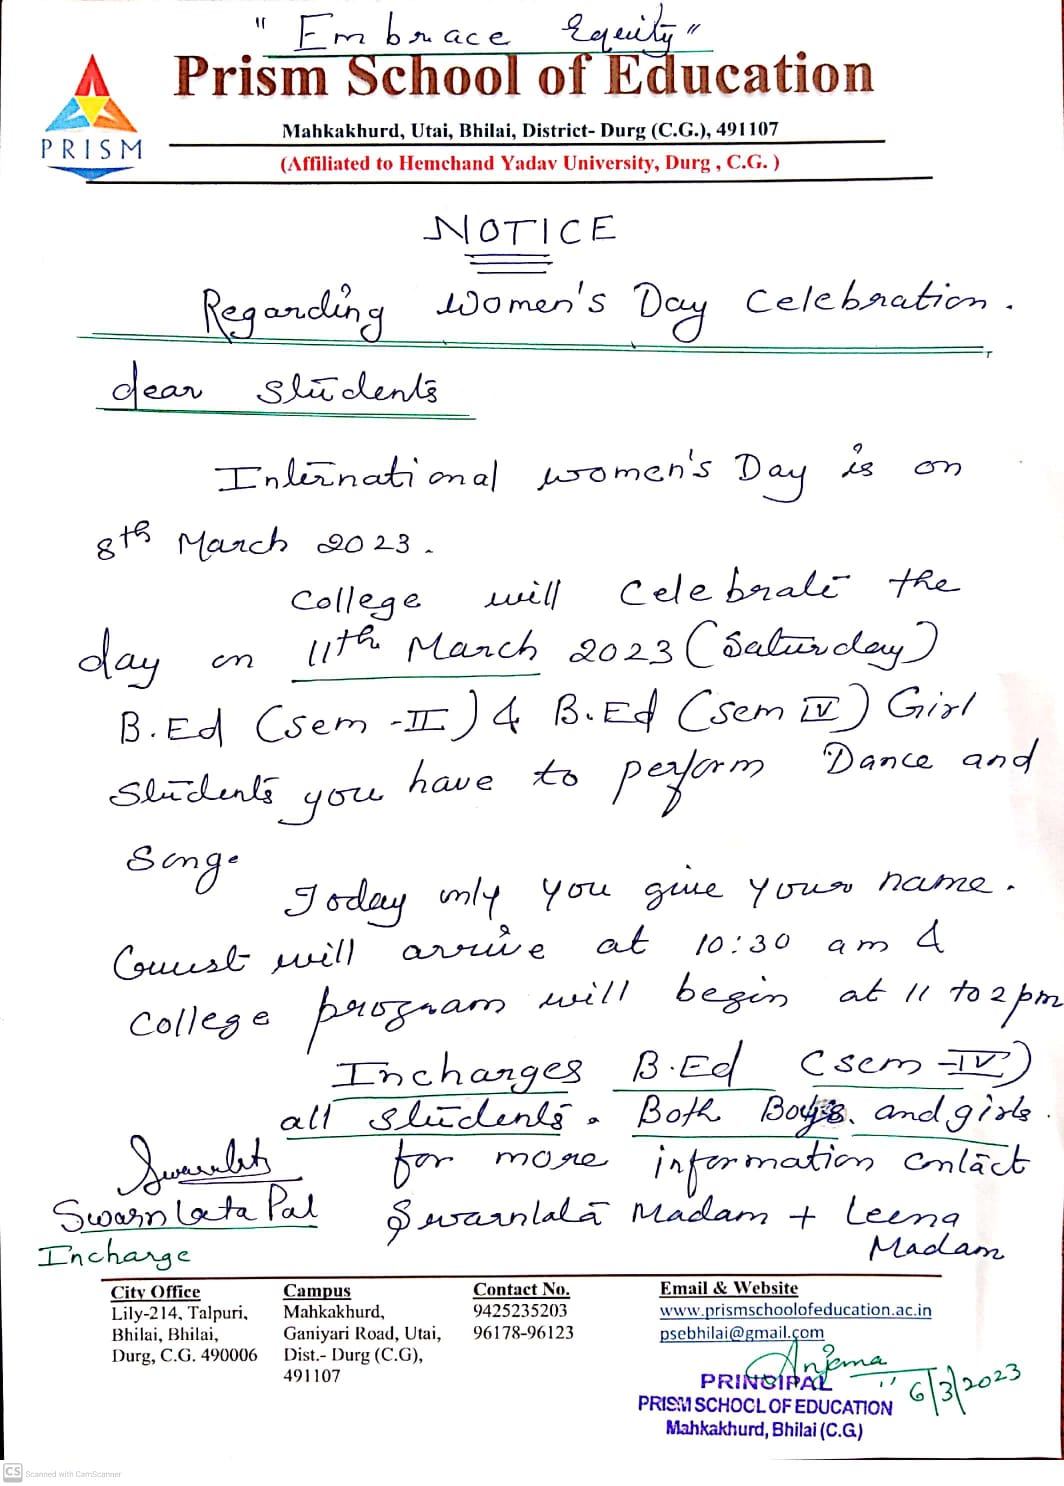 " Embrace Equity "
Prism School of Education
PRISM
Mahkakhurd, Utai, Bhilai, District- Durg (C.G.), 491107
(Affiliated to Hemchand Yadav University, Durg , C.G. )
NOTICE
Regarding Women's Day Celebration.
dear students
International women's Day is on
8th March 2023.
College will Celebrate the
day on 11th March 2023 (Saturday)
B.Ed (sem -II) & B.Ed (sem IV) Girl
Students you have to perform Dance and
Song.
Today only you give your name.
Guest will arrive at 10:30 am &
College program will begin at 11 to 2 pm
Incharges B.Ed (sem -IV)
all students. Both Boys. and girls.
for more information contact
Swarnlata Madam + Leena
Madam
Swarnlata
Swarn Lata Pal
Incharge
City Office
Lily-214, Talpuri,
Bhilai, Bhilai,
Durg, C.G. 490006
Campus
Mahkakhurd,
Ganiyari Road, Utai,
Dist.- Durg (C.G),
491107
Contact No.
9425235203
96178-96123
Email & Website
www.prismschoolofeducation.ac.in
psebhilai@gmail.com
6/3/2023
PRINCIPAL
PRISM SCHOOL OF EDUCATION
Mahkakhurd, Bhilai (C.G)
CS Scanned with CamScanner